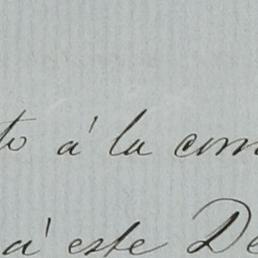 to á la com
á este De